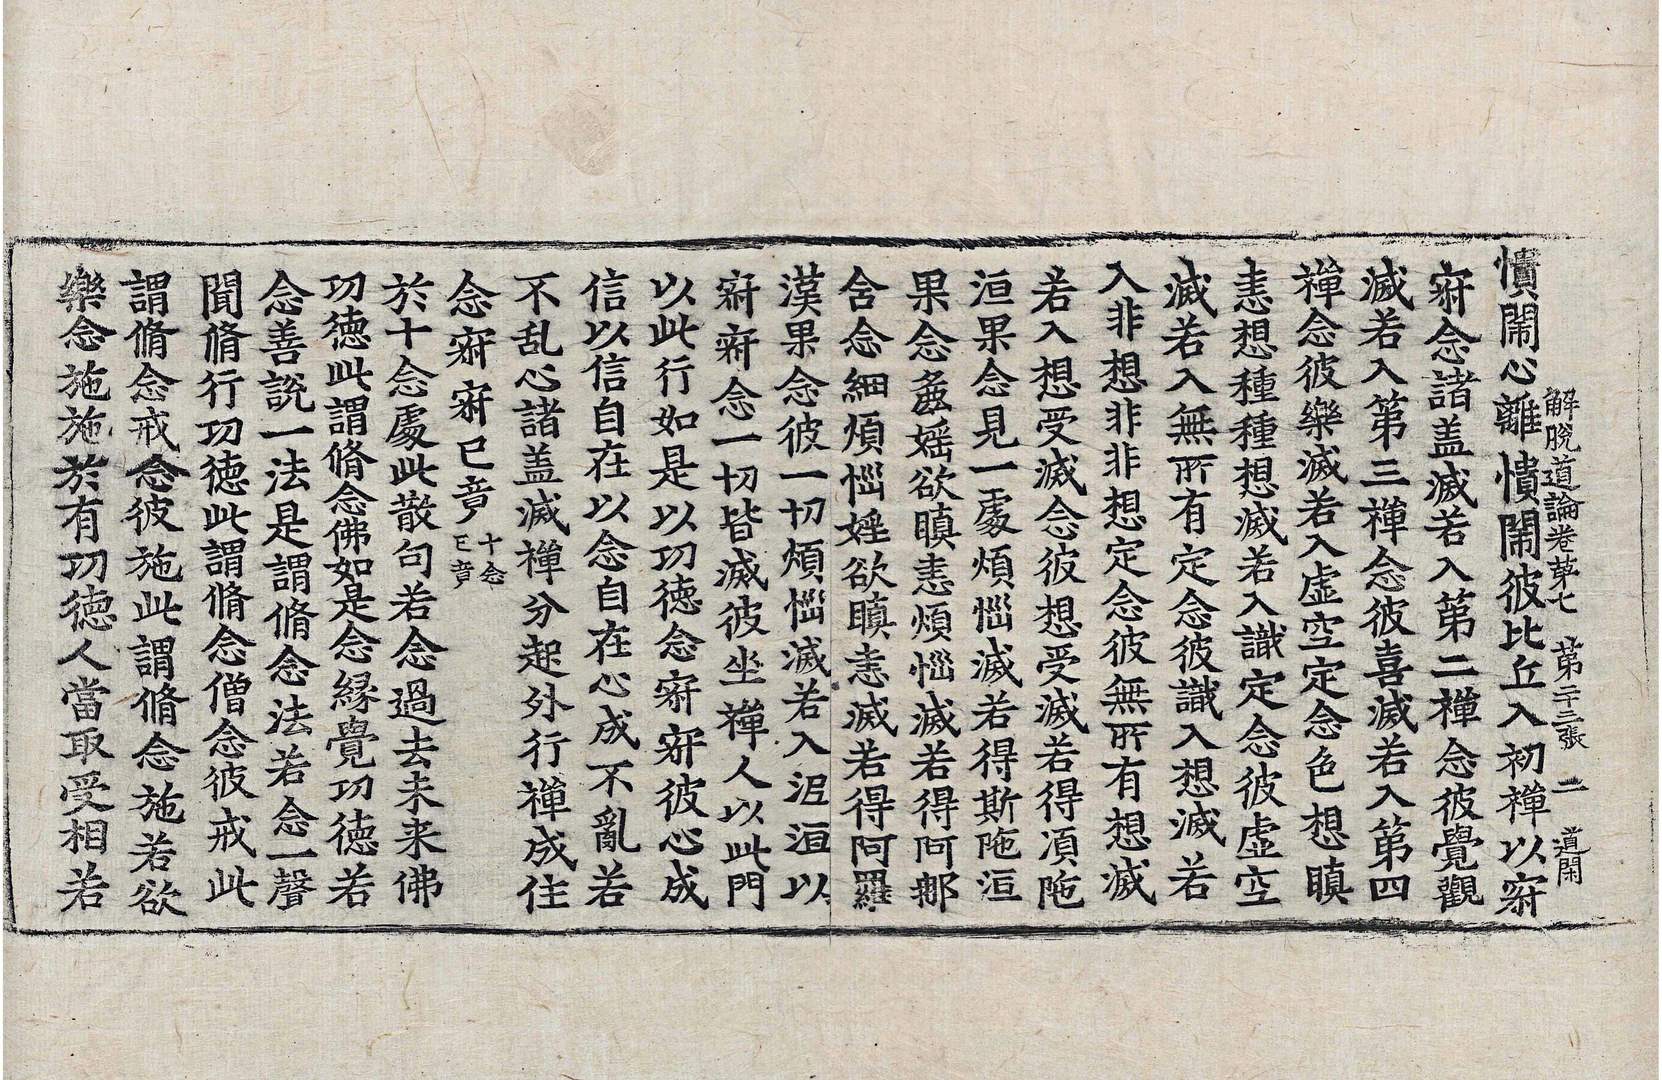 解脫道論卷第七 第二十三張 二 道閑
憒閙心離憒閙彼比丘入初禪以寂
寂念諸盖滅若入第二禪念彼覺觀
滅若入第三禪念彼喜滅若入第四
禪念彼樂滅若入虛空定念色想瞋
恚想種種想滅若入識定念彼虛空
滅若入無所有定念彼識入想滅若
入非想非非想定念彼無所有想滅
若入想受滅念彼想受滅若得湏陁
洹果念見一處煩惱滅若得斯陁洹
果念麁婬欲瞋恚煩惱滅若得阿那
含念細煩惱婬欲瞋恚滅若得阿羅
漢果念彼一切煩惱滅若入泥洹以
寂寂念一切皆滅彼坐禪人以此門
以此行如是以功德念寂寂彼心成
信以信自在以念自在心成不亂若
不乱心諸盖滅禪分起外行禪成住
念寂寂已竟 十念已竟
於十念處此散句若念過去未来佛
功德此謂脩念佛如是念縁覺功德若
念善說一法是謂脩念法若念一聲
聞脩行功德此謂脩念僧念彼戒此
謂脩念戒念彼施此謂脩念施若欲
樂念施施於有功德人當取受相若